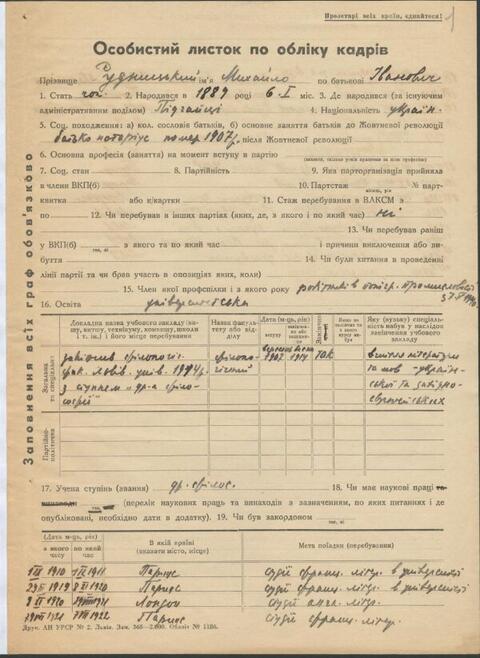 Пролетарі всіх країн, єднайтеся!
Особистий листок по обліку кадрів
Прізвище Рудницький ім'я Михайло по батькові Іванович
1. Стать чол 2. Народився в 1889 році 6-I міс. 3. Де народився (за існуючим
адміністративним поділом) Підгайці 4. Національність україн.
5. Соц. походження: а) кол. сословів батьків, б) основне заняття батьків до Жовтневої революції
батько нотаріус помер 1907 р. після Жовтневої революції
6. Основна професія (заняття) на момент вступу в партію
7. Соц. стан 8. Партійність 9. Яка парторганізація прийняла
в члени ВКП(б) 10. Партстаж № парт-
квитка або к/картки 11. Стаж перебування в ВЛКСМ з
по 12. Чи перебував в інших партіях (яких, де, з якого і по який час) ні
13. Чи перебував раніш
у ВКП(б) з якого та по який час і причини виключення або ви-
буття 14. Чи були хитання в проведенні
лінії партії та чи брав участь в опозиціях яких, коли)
15. Член якої профспілки і з якого року робітників
16. Освіта університетська
Заповнення всіх граф обов'язково
Докладна назва учбового закладу (ву-
зу, втузу, технікуму, комвузу, школи
і т. ін.) і його місце перебування
Назва факуль-
тету або від-
ділу
Дата (м-ць, рік)
Яку (вузьку) спеціаль-
ність набув у наслідок
закінчення учбового
закладу
Загальна та спеціальна
закінчив філологіч.
фак. Львів. унів. 1914 р.
з ступнем "др-а філо-
софії"
філоло-
гічний
1907 1914
література
та мов - україн-
ської та західно-
европейських
Партійно-політична
17. Учена ступінь (звання) др. філос. 18. Чи має наукові праці та
винаходи (перелік наукових праць та винаходів з зазначенням, по яких питаннях і де
опубліковані, необхідно дати в додатку). 19. Чи був закордоном
Дата (м-ць, рік)
з якого часу
по який час
В якій країні
(вказати місто, місце)
Мета поїздки (перебування)
1910 1911 Париж студії франц. літ. в університеті
1919 1920 Париж студії франц. літ. в університеті
1920 1921 Лондон студії англ. літ.
1921 1922 Париж студії франц. літ.
Друк. АН УРСР № 2. Львів. Зам. 365—2.000. Обліт № 1186.